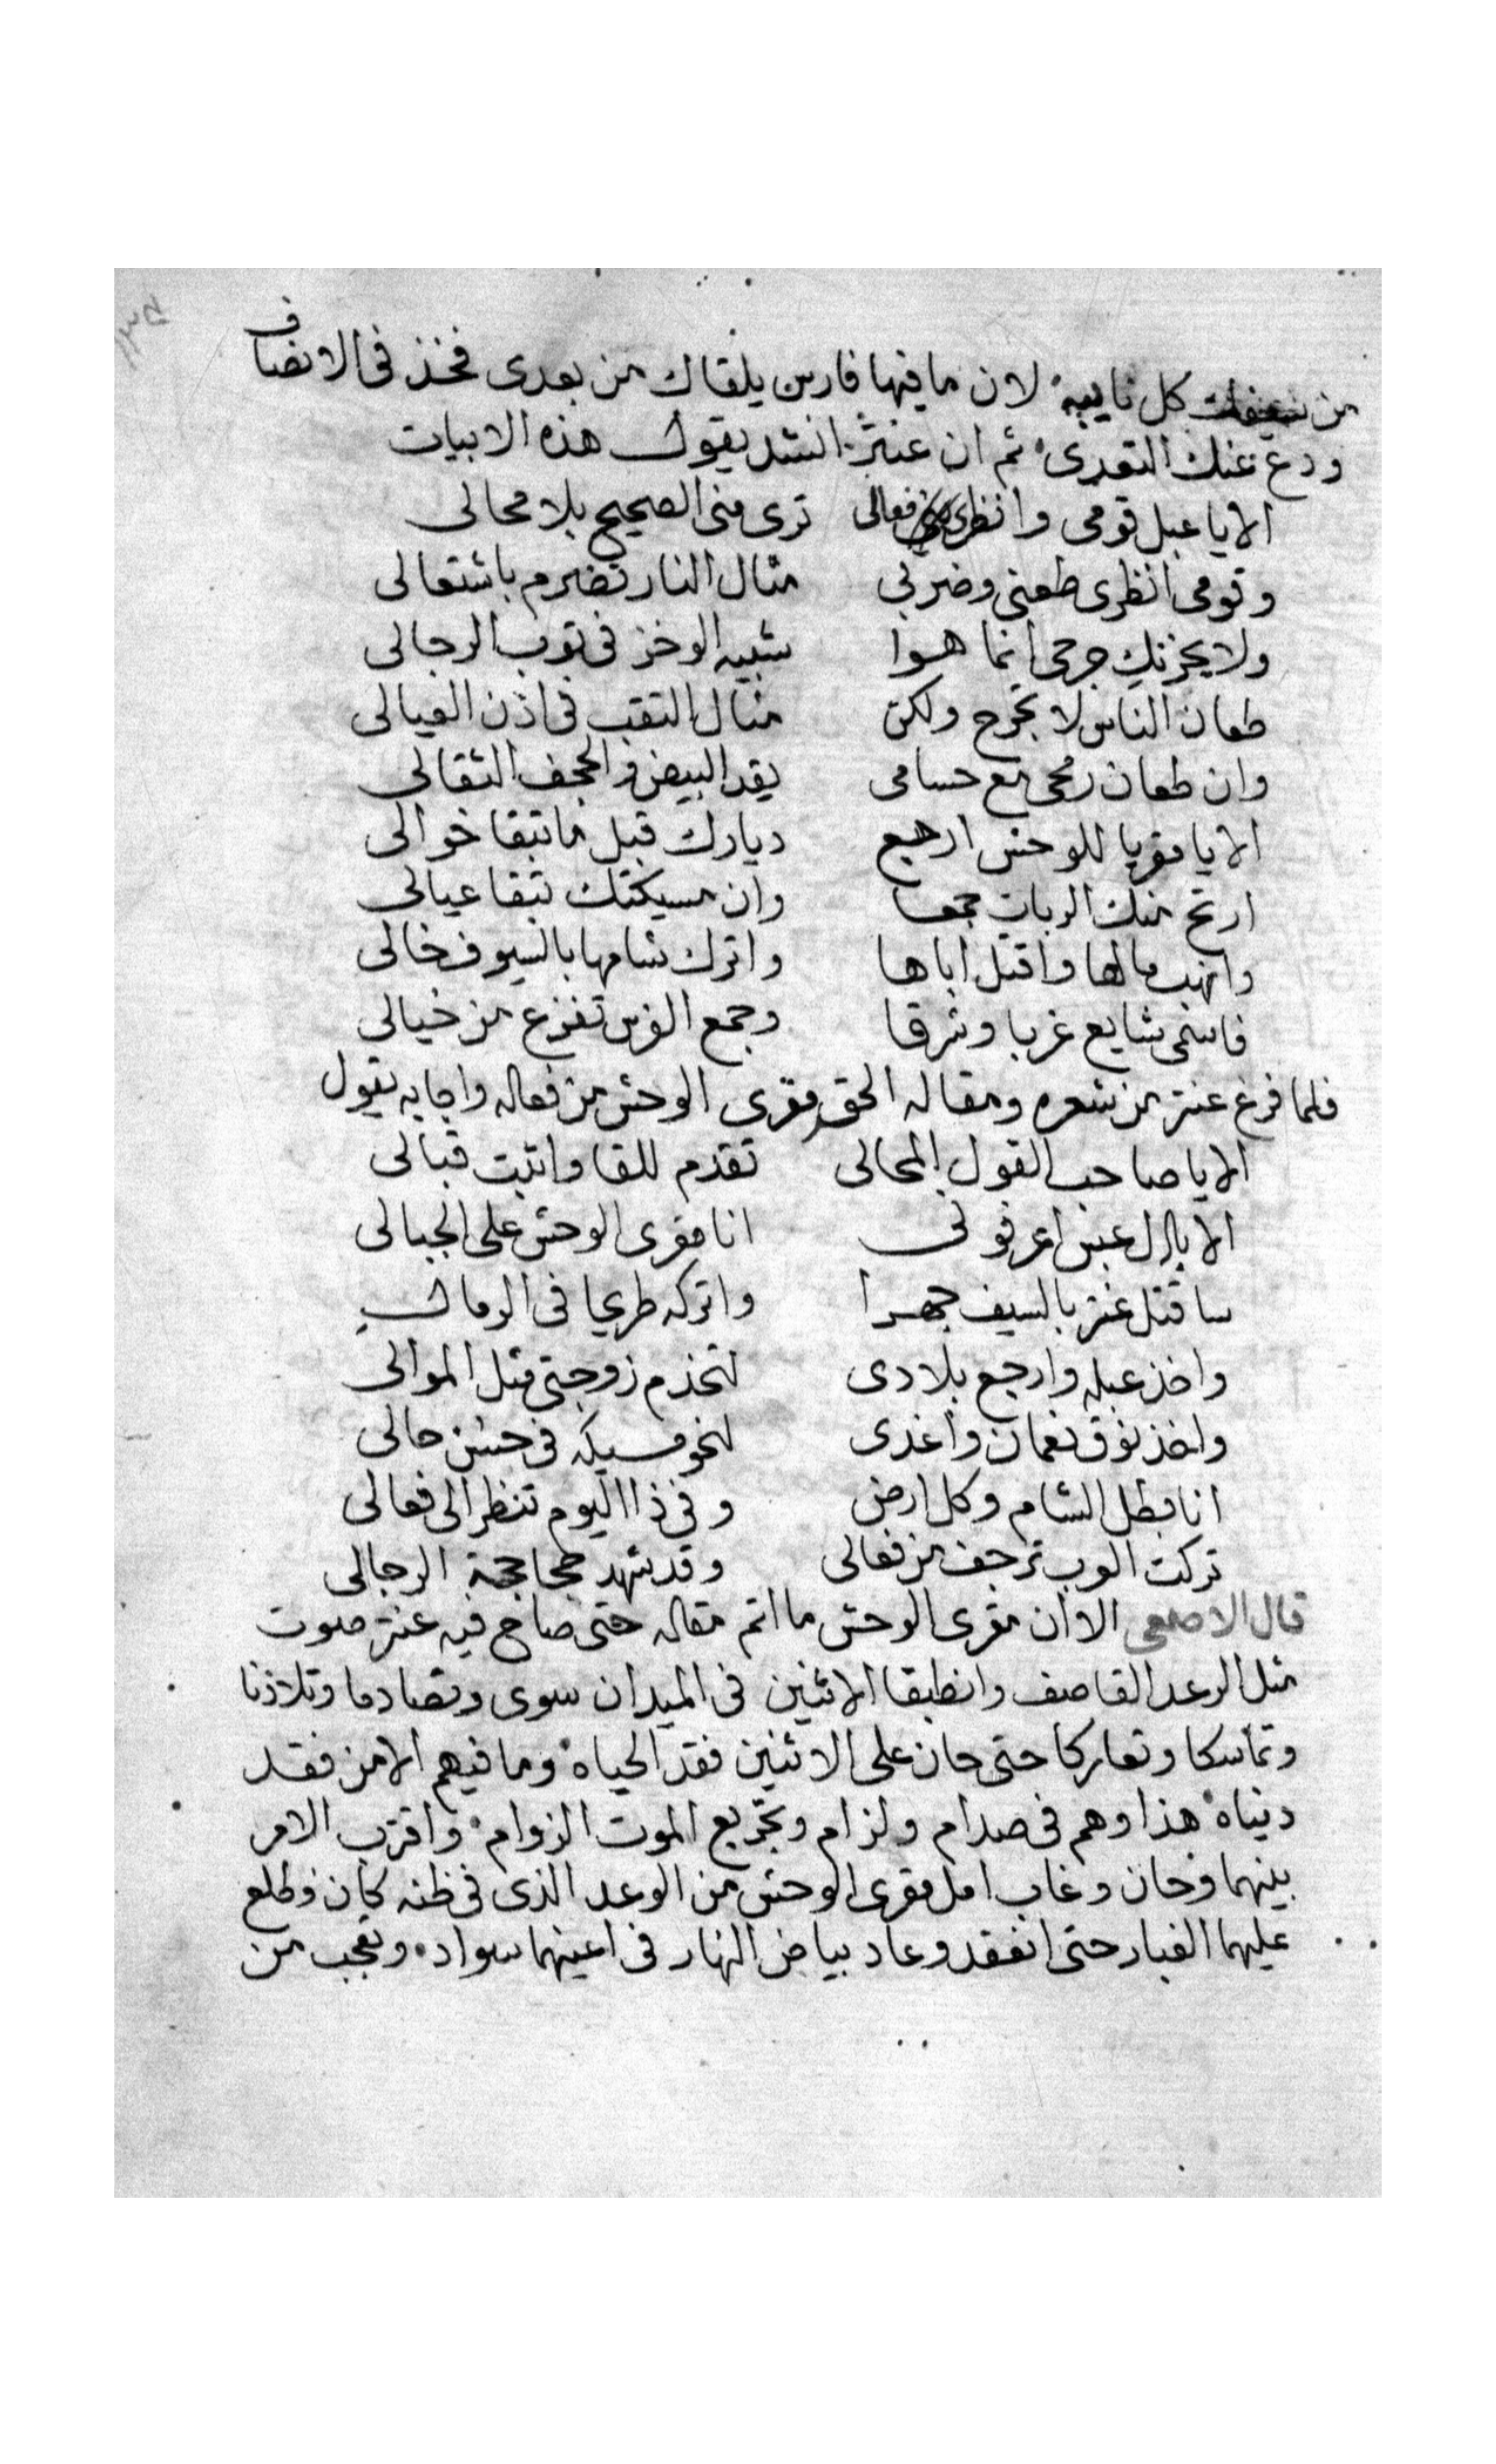 من كل نايبه لان ما فيها فارس يلقاك من بعدى فخذ فى الانصاف
ودع عنك التعدى ثم ان عنتر انشد يقول هذه الابيات
الا يا عبل قومى وانظرى فعالى ترى منى الصحيح بلا محالى
وقومى انظرى طعنى وضربى مثال النار تضرم باشتعالى
ولا يحزنك جرحى انما هوا شبيه الوخز فى توب الرجالى
طعان الناس لا تجرح ولكن مثال التقب فى اذن العيالى
وان طعان رمحى مع حسامى يقد البيض والحجف الثقالى
الا يا مقريا للوحش ارجع ديارك قبل ما تبقا خوالى
ارتح منك الربات جمعا وان مسيكتك تبقا عيالى
وانهب مالها واقتل اباها واترك شامها بالسيوف خالى
فاسمى شايع غربا وشرقا وجمع الفرس تفزع من خيالى
فلما فرغ عنتر من شعره ومقاله الحق مقرى الوحش من فعاله واجابه يقول
الا يا صاحب القول المحالى تقدم للقا واتبت قبالى
الا يال عبس اعرفونى انا مقرى الوحش على الجبالى
ساقتل عنتر بالسيف جهرا واتركه طريحا فى الرمال
واخذ عبله وارجع بلادى لتخدم زوجتى مثل الموالى
واخذ نوق نعمان واغدى لنحو مسيكه فى حسن حالى
انا بطل الشام وكل ارض وفى ذا اليوم تنظر الى فعالى
تركت العرب ترجف من فعالى وقد شهد جحاجحة الرجالى
قال الاصمعى الا ان مقرى الوحش ما اتم مقاله حتى صاح فيه عنتر صوت
مثل الرعد القاصف وانطبقا الاثنين فى الميدان سوى وتصادما وتلاذنا
وتماسكا وتعاركا حتى حان على الاثنين فقد الحياه وما فيهم الا من فقد
ديناه هذا وهم فى صدام ولزام وتجريع الموت الزوام واقترب الامر
بينهما وحان وغاب امل مقرى الوحش من الوعد الذى فى ظنه كان وطلع
عليهما الغبار حتى انعقد وعاد بياض النهار فى اعينهما سواد وتعجب من